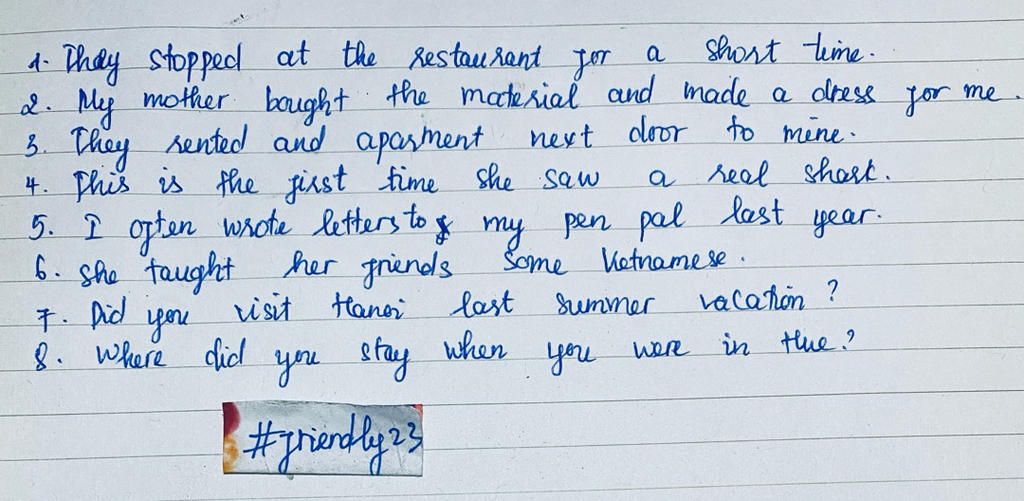 1. They stopped at the restaurant for a short time.
2. My mother bought the material and made a dress for me.
3. They rented and aparment next door to mine.
4. This is the first time she saw a real shark.
5. I often wrote letters to my pen pal last year.
6. She taught her friends some Vietnamese.
7. Did you visit Hanoi last summer vacation?
8. Where did you stay when you were in Hue?
#friendly23